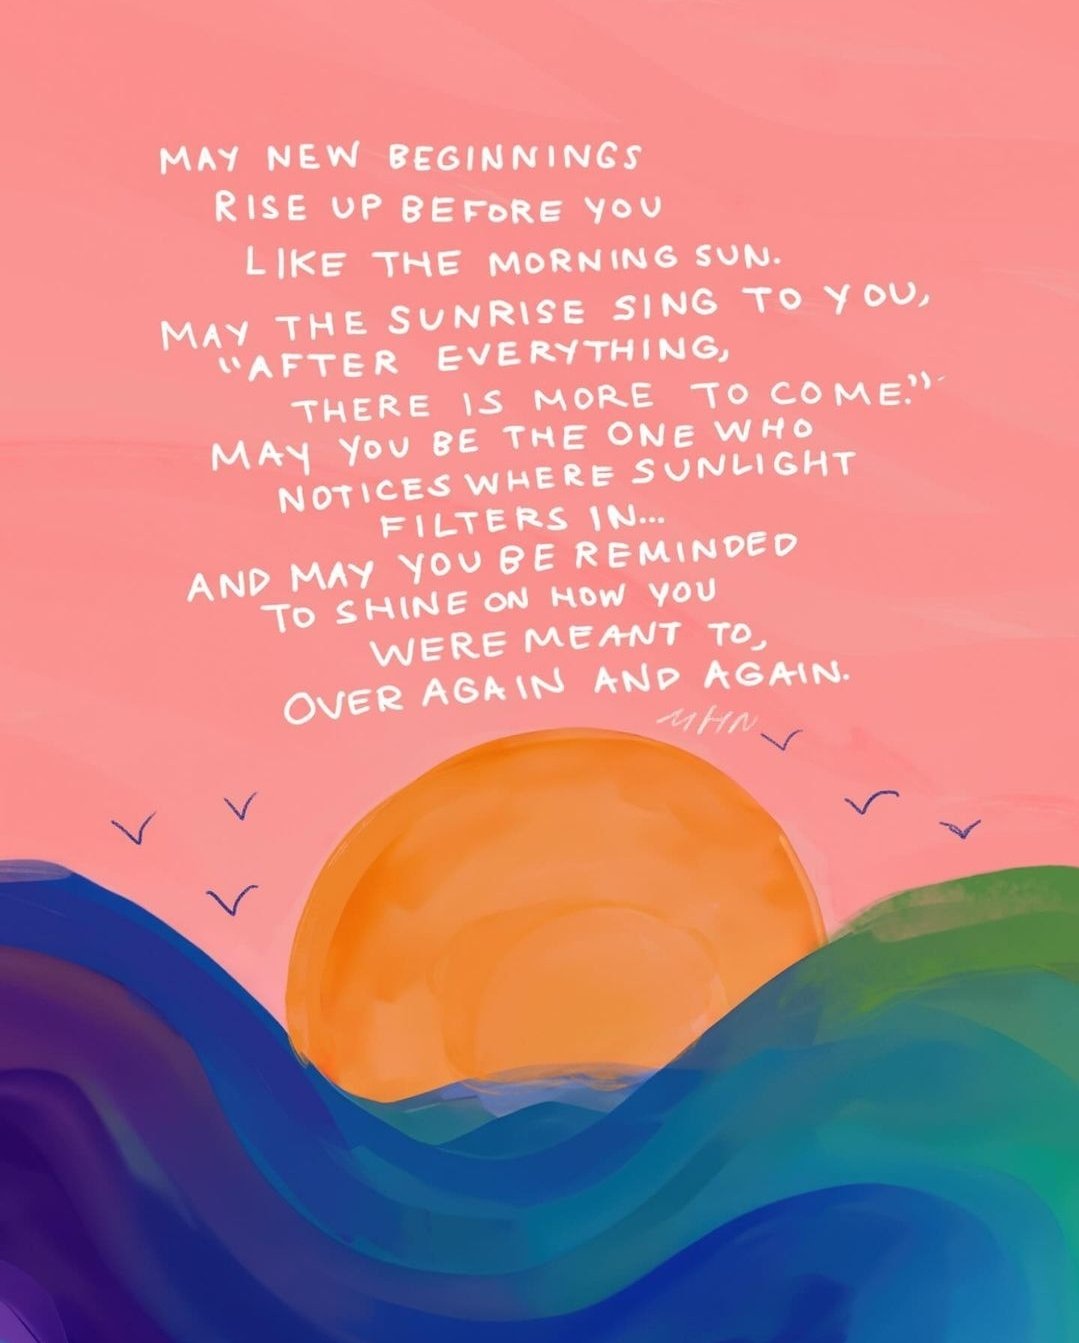 MAY NEW BEGINNINGS
RISE UP BEFORE YOU
LIKE THE MORNING SUN.
MAY THE SUNRISE SING TO YOU,
"AFTER EVERYTHING,
THERE IS MORE TO COME."
MAY YOU BE THE ONE WHO
NOTICES WHERE SUNLIGHT
FILTERS IN...
AND MAY YOU BE REMINDED
TO SHINE ON HOW YOU
WERE MEANT TO,
OVER AGAIN AND AGAIN.
MHN